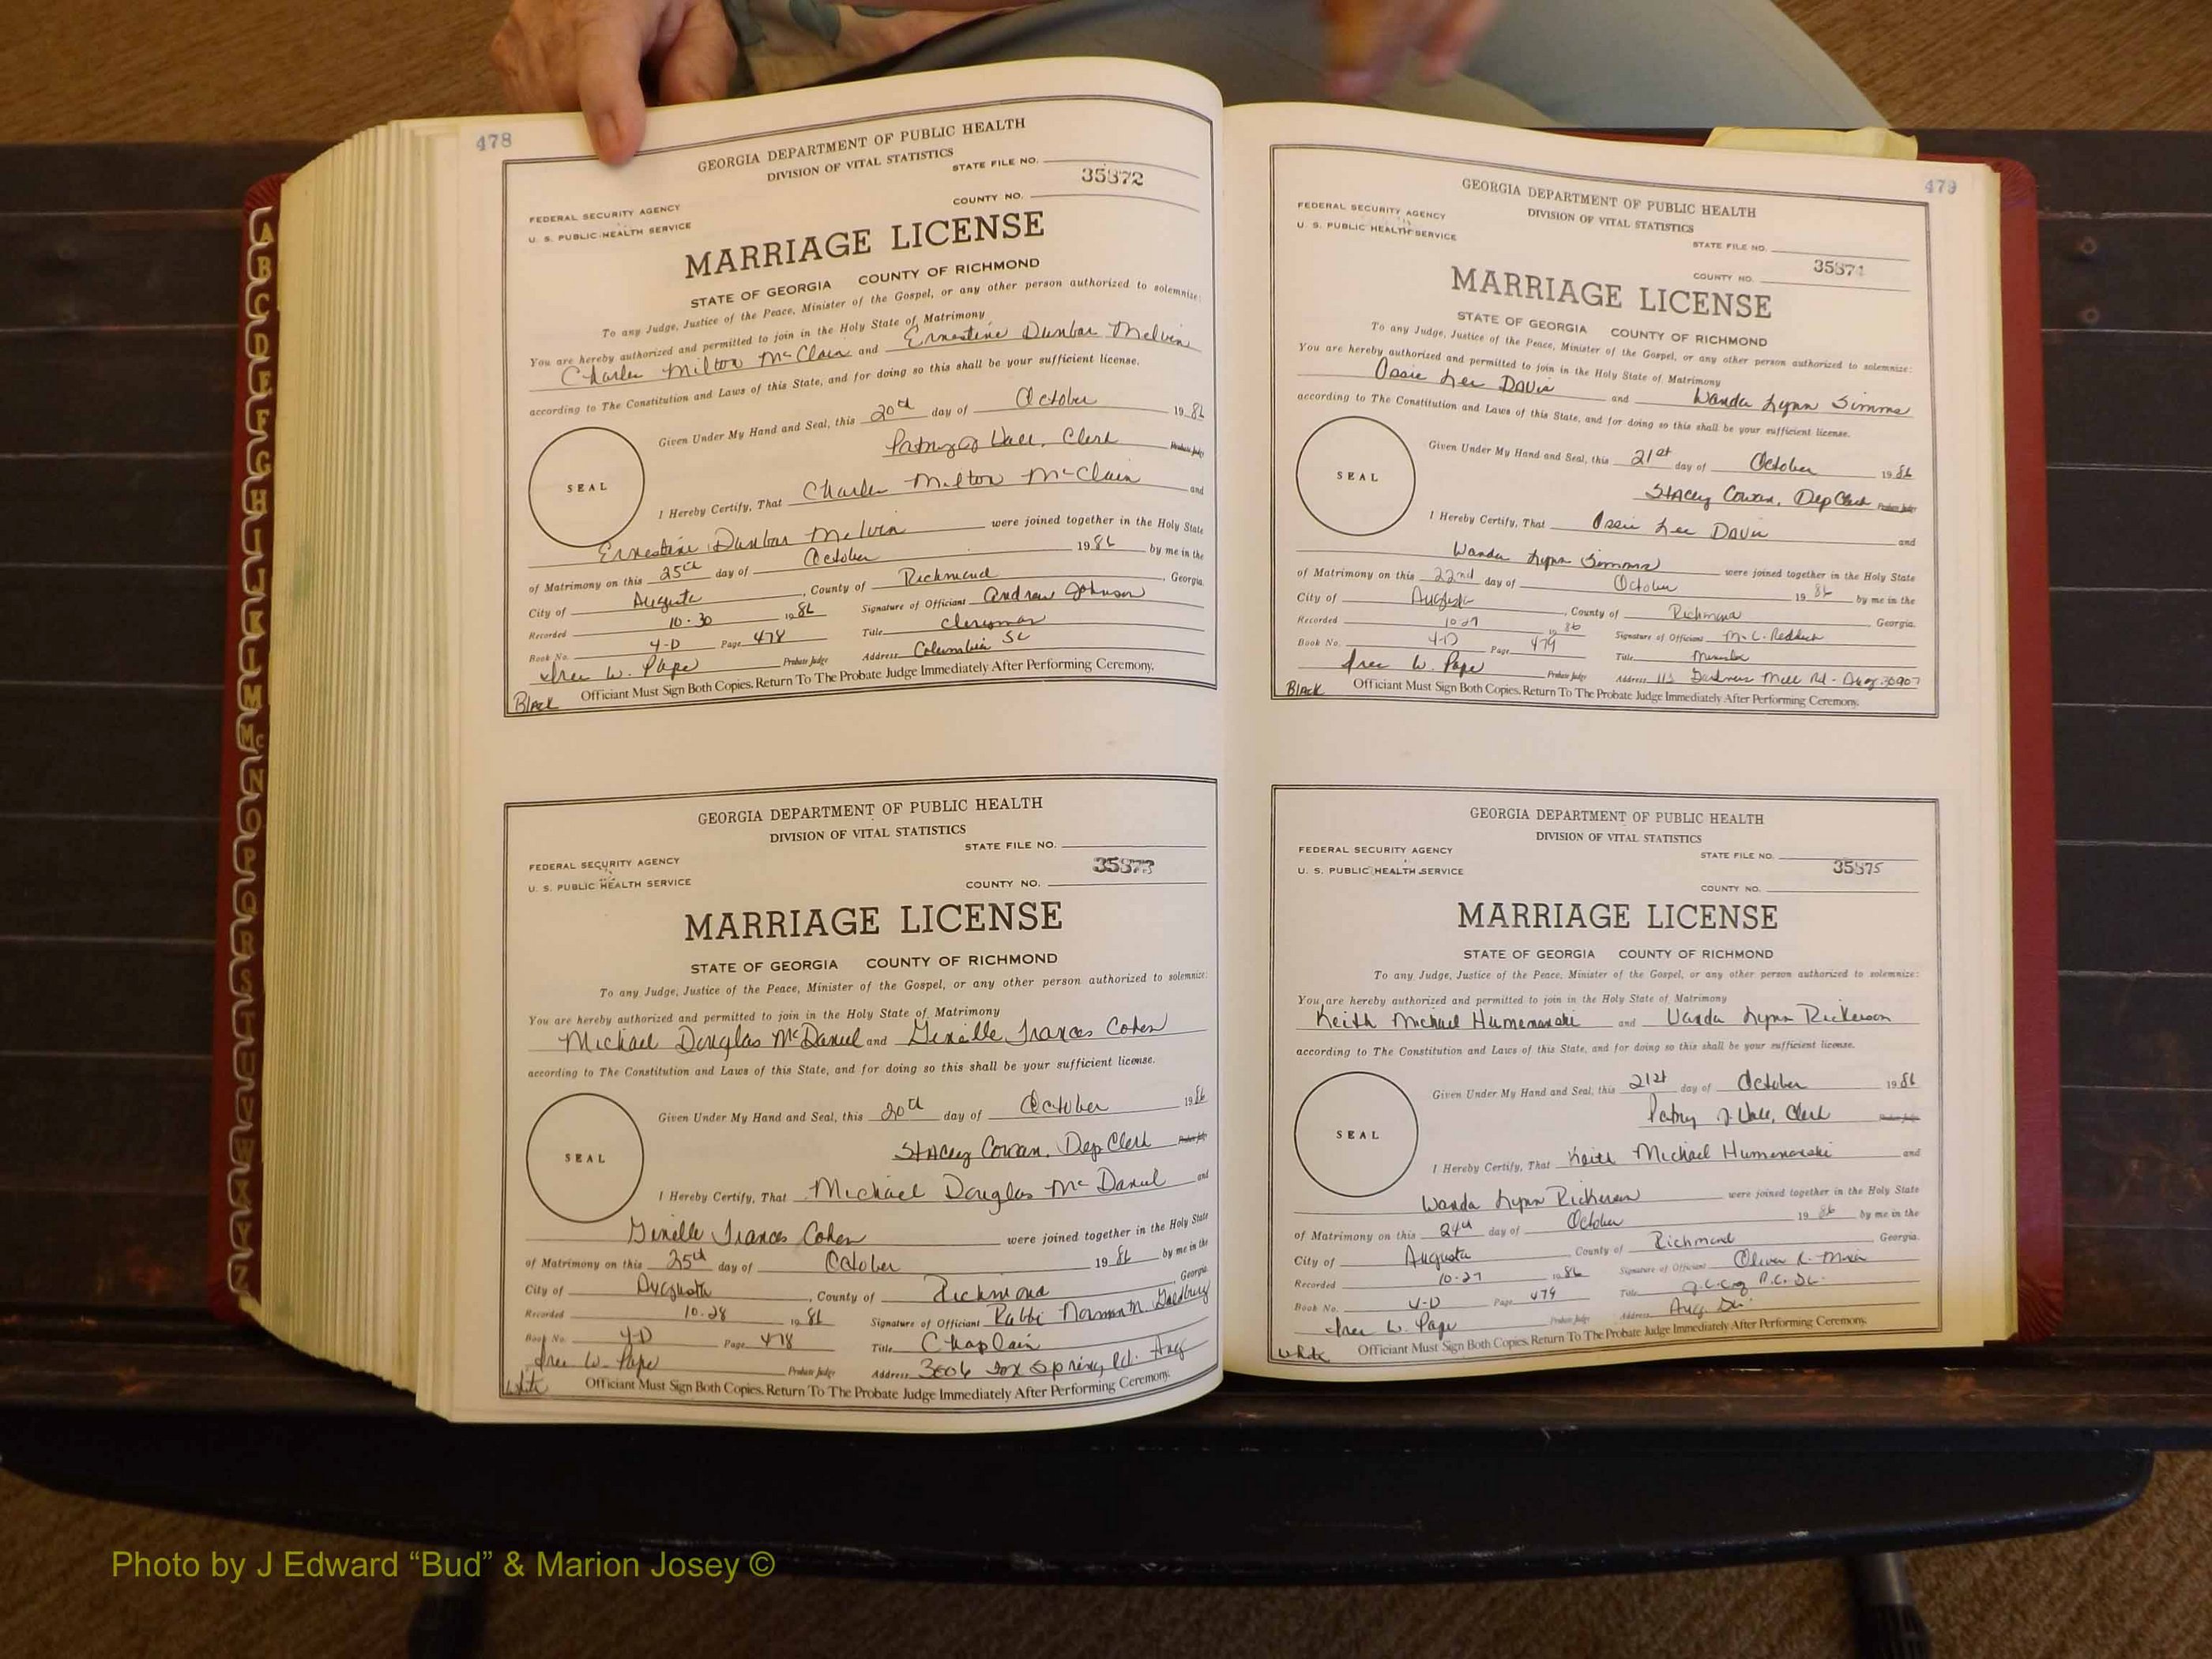 478
GEORGIA DEPARTMENT OF PUBLIC HEALTH
DIVISION OF VITAL STATISTICS
STATE FILE NO.
35872
COUNTY NO.
FEDERAL SECURITY AGENCY
U. S. PUBLIC HEALTH SERVICE
MARRIAGE LICENSE
STATE OF GEORGIA COUNTY OF RICHMOND
To any Judge, Justice of the Peace, Minister of the Gospel, or any other person authorized to solemnize:
You are hereby authorized and permitted to join in the Holy State of Matrimony
Charles Milton McClain and Ernestine Dunbar Melvin
according to The Constitution and Laws of this State, and for doing so this shall be your sufficient license.
Given Under My Hand and Seal, this 20th day of October 1986
Clerk Probate Judge
SEAL
I Hereby Certify, That Charles Milton McClain and
Ernestine Dunbar Melvin were joined together in the Holy State
of Matrimony on this 25th day of October 1986 by me in the
City of Augusta, County of Richmond, Georgia.
Recorded 10-30 1986 Signature of Officiant Andrew Johnson
Book No. 4-D Page 478 Title Clergyman
W. Pape Probate Judge Address Columbia SC
Officiant Must Sign Both Copies. Return To The Probate Judge Immediately After Performing Ceremony.
Black
GEORGIA DEPARTMENT OF PUBLIC HEALTH
DIVISION OF VITAL STATISTICS
STATE FILE NO.
35873
COUNTY NO.
FEDERAL SECURITY AGENCY
U. S. PUBLIC HEALTH SERVICE
MARRIAGE LICENSE
STATE OF GEORGIA COUNTY OF RICHMOND
To any Judge, Justice of the Peace, Minister of the Gospel, or any other person authorized to solemnize:
You are hereby authorized and permitted to join in the Holy State of Matrimony
Michael Douglas McDaniel and Frances Cohen
according to The Constitution and Laws of this State, and for doing so this shall be your sufficient license.
Given Under My Hand and Seal, this 20th day of October 1986
Stacey Cowan, Dep Clerk Probate Judge
SEAL
I Hereby Certify, That Michael Douglas McDaniel and
Frances Cohen were joined together in the Holy State
of Matrimony on this 25th day of October 1986 by me in the
City of Augusta, County of Richmond, Georgia.
Recorded 10-28 1986 Signature of Officiant Rabbi Norman M. Goldburg
Book No. 4-D Page 478 Title Chaplain
W. Pape Probate Judge Address 3606 Fox Spring Rd. Aug
Officiant Must Sign Both Copies. Return To The Probate Judge Immediately After Performing Ceremony.
White
479
GEORGIA DEPARTMENT OF PUBLIC HEALTH
DIVISION OF VITAL STATISTICS
STATE FILE NO.
35871
COUNTY NO.
FEDERAL SECURITY AGENCY
U. S. PUBLIC HEALTH SERVICE
MARRIAGE LICENSE
STATE OF GEORGIA COUNTY OF RICHMOND
To any Judge, Justice of the Peace, Minister of the Gospel, or any other person authorized to solemnize:
You are hereby authorized and permitted to join in the Holy State of Matrimony
Ossie Lee Davis and Wanda Lynn Simms
according to The Constitution and Laws of this State, and for doing so this shall be your sufficient license.
Given Under My Hand and Seal, this 21st day of October 1986
Stacey Cowan, Dep Clerk Probate Judge
SEAL
I Hereby Certify, That Ossie Lee Davis and
Wanda Lynn Simms were joined together in the Holy State
of Matrimony on this 22nd day of October 1986 by me in the
City of Augusta, County of Richmond, Georgia.
Recorded 10-27 1986 Signature of Officiant M. C. Reddick
Book No. 4-D Page 479 Title Minister
W. Pape Probate Judge Address Mill Rd - Aug. 30907
Officiant Must Sign Both Copies. Return To The Probate Judge Immediately After Performing Ceremony.
Black
GEORGIA DEPARTMENT OF PUBLIC HEALTH
DIVISION OF VITAL STATISTICS
STATE FILE NO.
35875
COUNTY NO.
FEDERAL SECURITY AGENCY
U. S. PUBLIC HEALTH SERVICE
MARRIAGE LICENSE
STATE OF GEORGIA COUNTY OF RICHMOND
To any Judge, Justice of the Peace, Minister of the Gospel, or any other person authorized to solemnize:
You are hereby authorized and permitted to join in the Holy State of Matrimony
Keith Michael Humenanski and Wanda Lynn Rickerson
according to The Constitution and Laws of this State, and for doing so this shall be your sufficient license.
Given Under My Hand and Seal, this 21st day of October 1986
Clerk Probate Judge
SEAL
I Hereby Certify, That Keith Michael Humenanski and
Wanda Lynn Rickerson were joined together in the Holy State
of Matrimony on this 24th day of October 1986 by me in the
City of Augusta County of Richmond Georgia.
Recorded 10-27 1986 Signature of Officiant Oliver
Book No. 4-D Page 479 Title
W. Pape Probate Judge Address Aug.
Officiant Must Sign Both Copies. Return To The Probate Judge Immediately After Performing Ceremony.
White
A
B
C
D
E
F
G
H
I
J
K
L
M
Mc
N
O
P
Q
R
S
T
U
V
W
X
Y
Z
Photo by J Edward “Bud” & Marion Josey ©